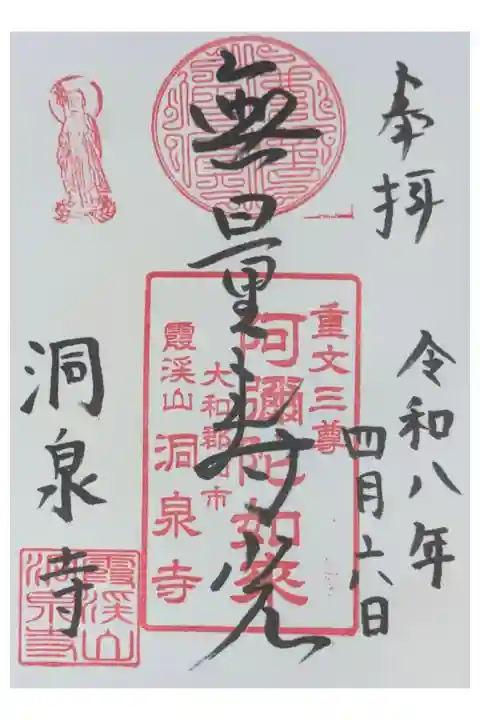 奉拝
令和八年
四月六日
無量寿光
重文三尊
阿彌陀如來
大和郡山市
霞渓山 洞泉寺
洞泉寺
霞渓山
洞泉寺